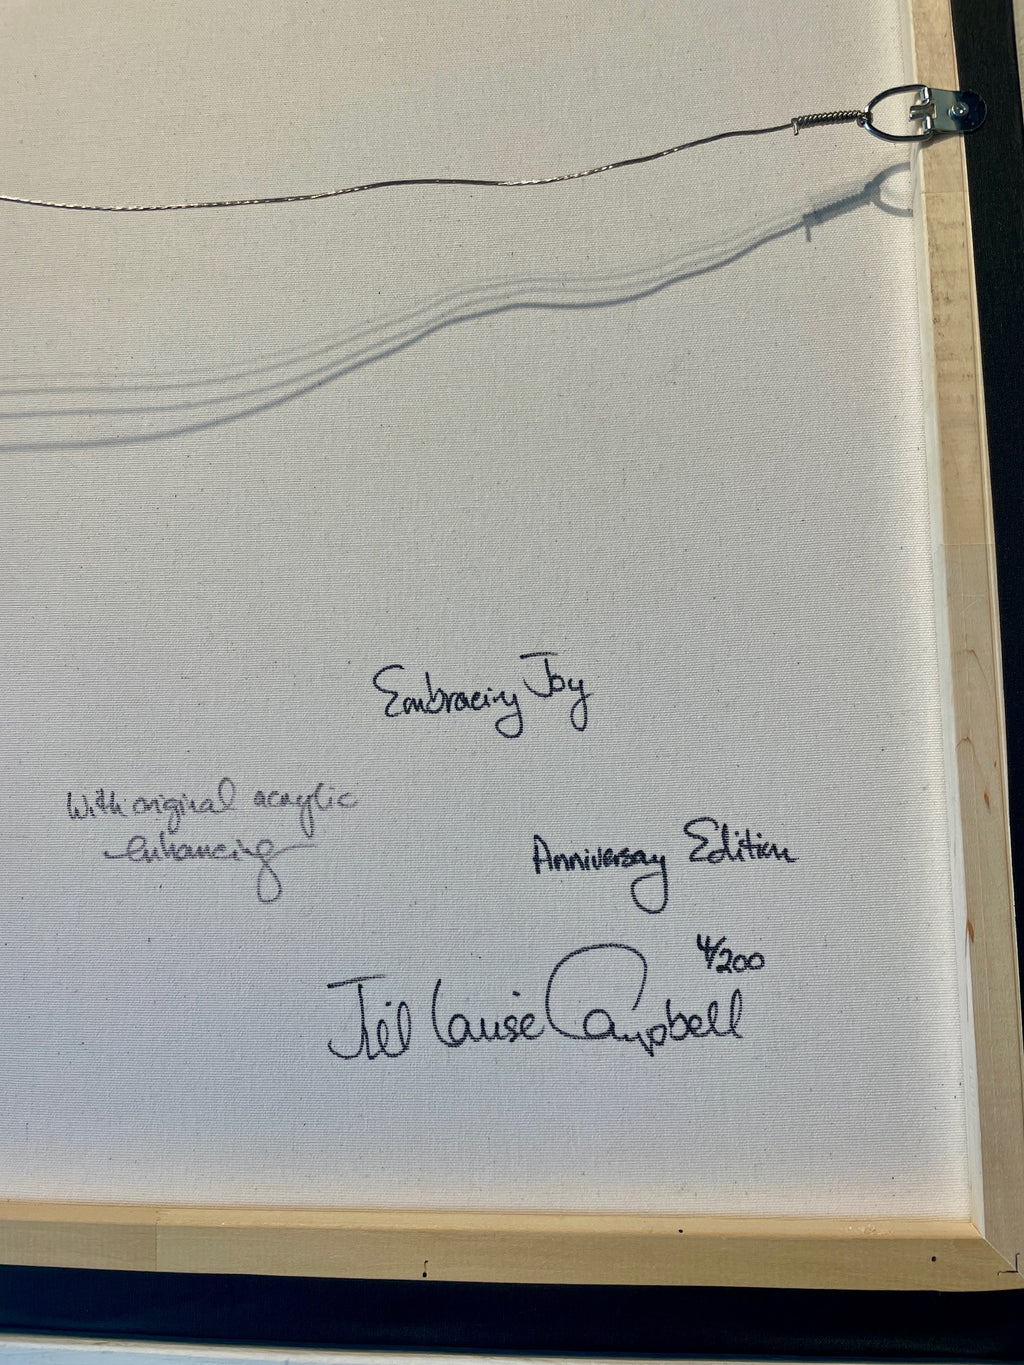 Embracing Joy
With original acrylic
enhancing
Anniversary Edition
4/200
Jill Louise Campbell